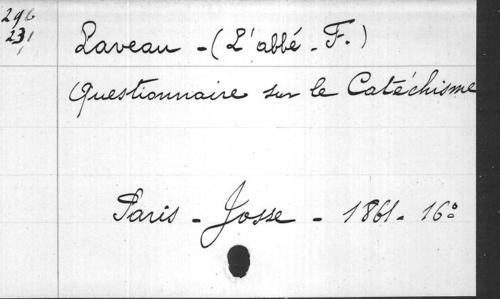 296
231
Laveau - (L'abbé - F.)
Questionnaire sur le Catéchisme
Paris - Josse - 1861 - 16°